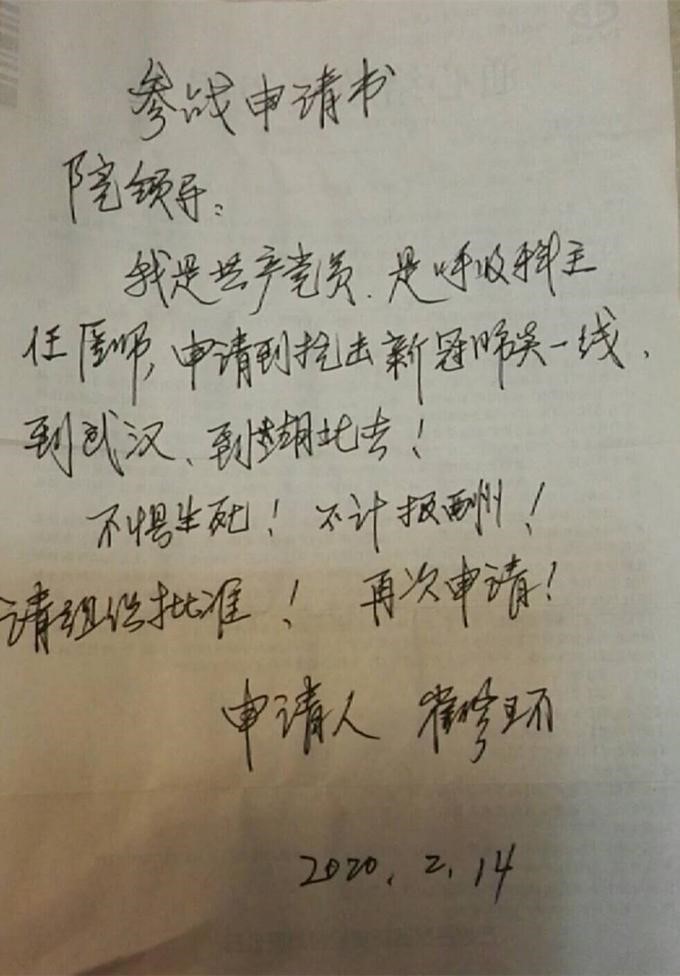 参战申请书
院领导：
我是共产党员、是呼吸科主
任医师，申请到抗击新冠肺炎一线、
到武汉、到湖北去！
不惧生死！不计报酬！
请组织批准！再次申请！
申请人 崔修环
2020.2.14